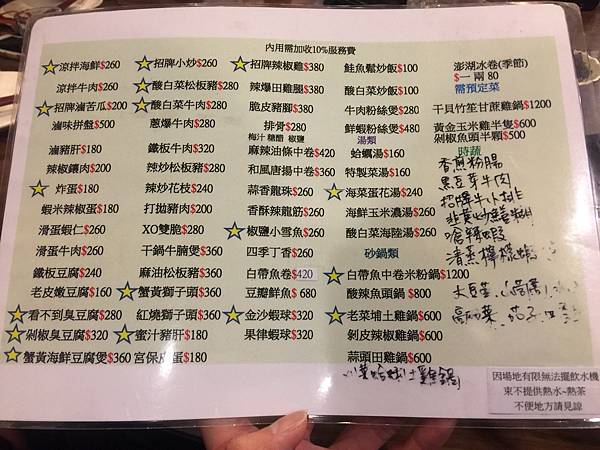 內用需加收10%服務費
涼拌海鮮$260
涼拌牛肉$260
招牌滷苦瓜$200
滷味拼盤$500
滷豬肝$180
辣椒鑲肉$200
炸蛋$180
蝦米辣椒蛋$180
滑蛋蝦仁$260
滑蛋牛肉$260
鐵板豆腐$240
老皮嫩豆腐$160
看不到臭豆腐$320
剁椒臭豆腐$320
蟹黃海鮮豆腐煲$360
招牌小炒$260
酸白菜松板豬$280
酸白菜牛肉$280
蔥爆牛肉$280
鐵板牛肉$320
辣炒松板豬$280
辣炒花枝$240
打拋豬肉$200
XO雙脆$280
干鍋牛腩煲$360
麻油松板豬$360
蟹黃獅子頭$360
紅燒獅子頭$360
蜜汁豬肝$180
宮保皮蛋$180
招牌辣椒雞$380
辣爆田雞腿$380
脆皮豬腳$380
排骨$280
梅汁 糖醋 椒鹽
麻辣油條中卷$420
和風唐揚中卷$360
蒜香龍珠$260
香酥辣龍筋$260
椒鹽小雪魚$260
四季丁香$260
白帶魚卷$420
豆瓣鮮魚$ 680
金沙蝦球$320
果律蝦球$320
鮭魚鬆炒飯$100
酸白菜炒飯$100
牛肉粉絲煲$280
鮮蝦粉絲煲$480
湯類
蛤蠣湯$160
特製菜湯$160
海菜蛋花湯$240
海鮮玉米濃湯$260
酸白菜海陸湯$260
砂鍋類
白帶魚中卷米粉鍋$1200
酸辣魚頭鍋 $800
老菜埔土雞鍋$600
剝皮辣椒雞鍋$600
蒜頭田雞鍋$600
澎湖冰卷(季節)
$一 兩 80
需預定菜
干貝竹笙甘蔗雞鍋$1200
黃金玉米雞半隻$600
剁椒魚頭半顆$500
時蔬
香煎粉腸
黑豆芽牛肉
招牌牛小排
因場地有限無法擺飲水機
東不提供熱水~熱茶
不便地方請見諒